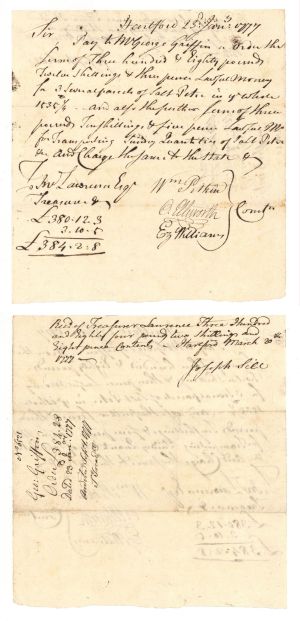 Hartford 23d Jany 1777
Sir
Pay to Mr George Griffin or Order the
Sum of Three hundred & Eighty pounds
Twelve Shillings & three pence Lawful Money
for Several parcels of Salt Petre in ye whole
and also the further Sum of three
pounds Ten shillings & five pence Lawful
for Transporting Sundry Quantities of Salt Petre
& And Charge the Same to the State &
Jno Lawrence Esqr
Treasurer &
£ 380-12-3
3-10-5
£ 384-2-8
Wm Pitkin
O. Ellsworth
Ez Williams
Comtee
Recd of Treasurer Lawrence Three Hundred
and Eighty four pound two Shillings and
Eight pence Contents Hartford March
1777
Joseph Sill
Geo: Griffin
Order
£384-2-8
Dated 23 Jany 1777